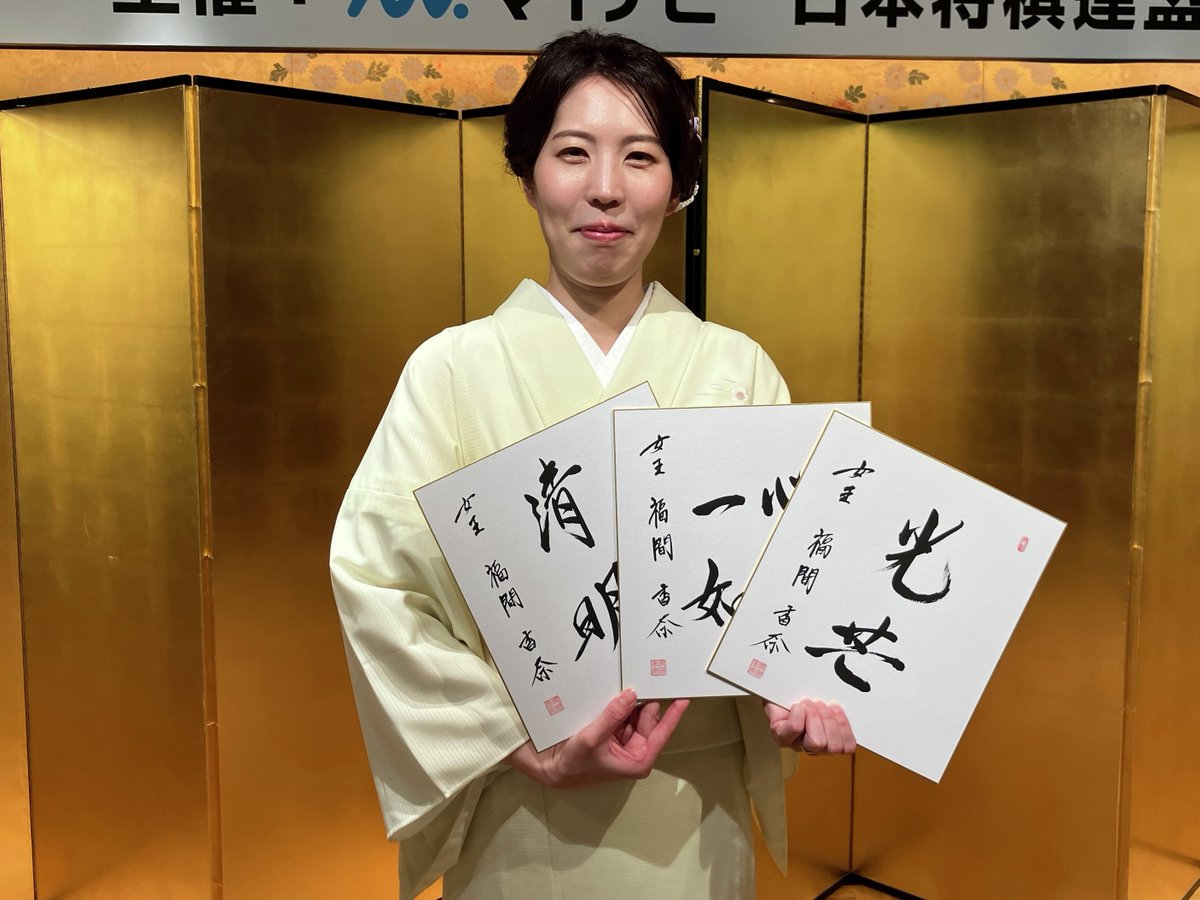 主催 マイナビ 日本将棋連盟
清明
女王 福間 香奈
一心
如
女王 福間 香奈
光芒
女王 福間 香奈